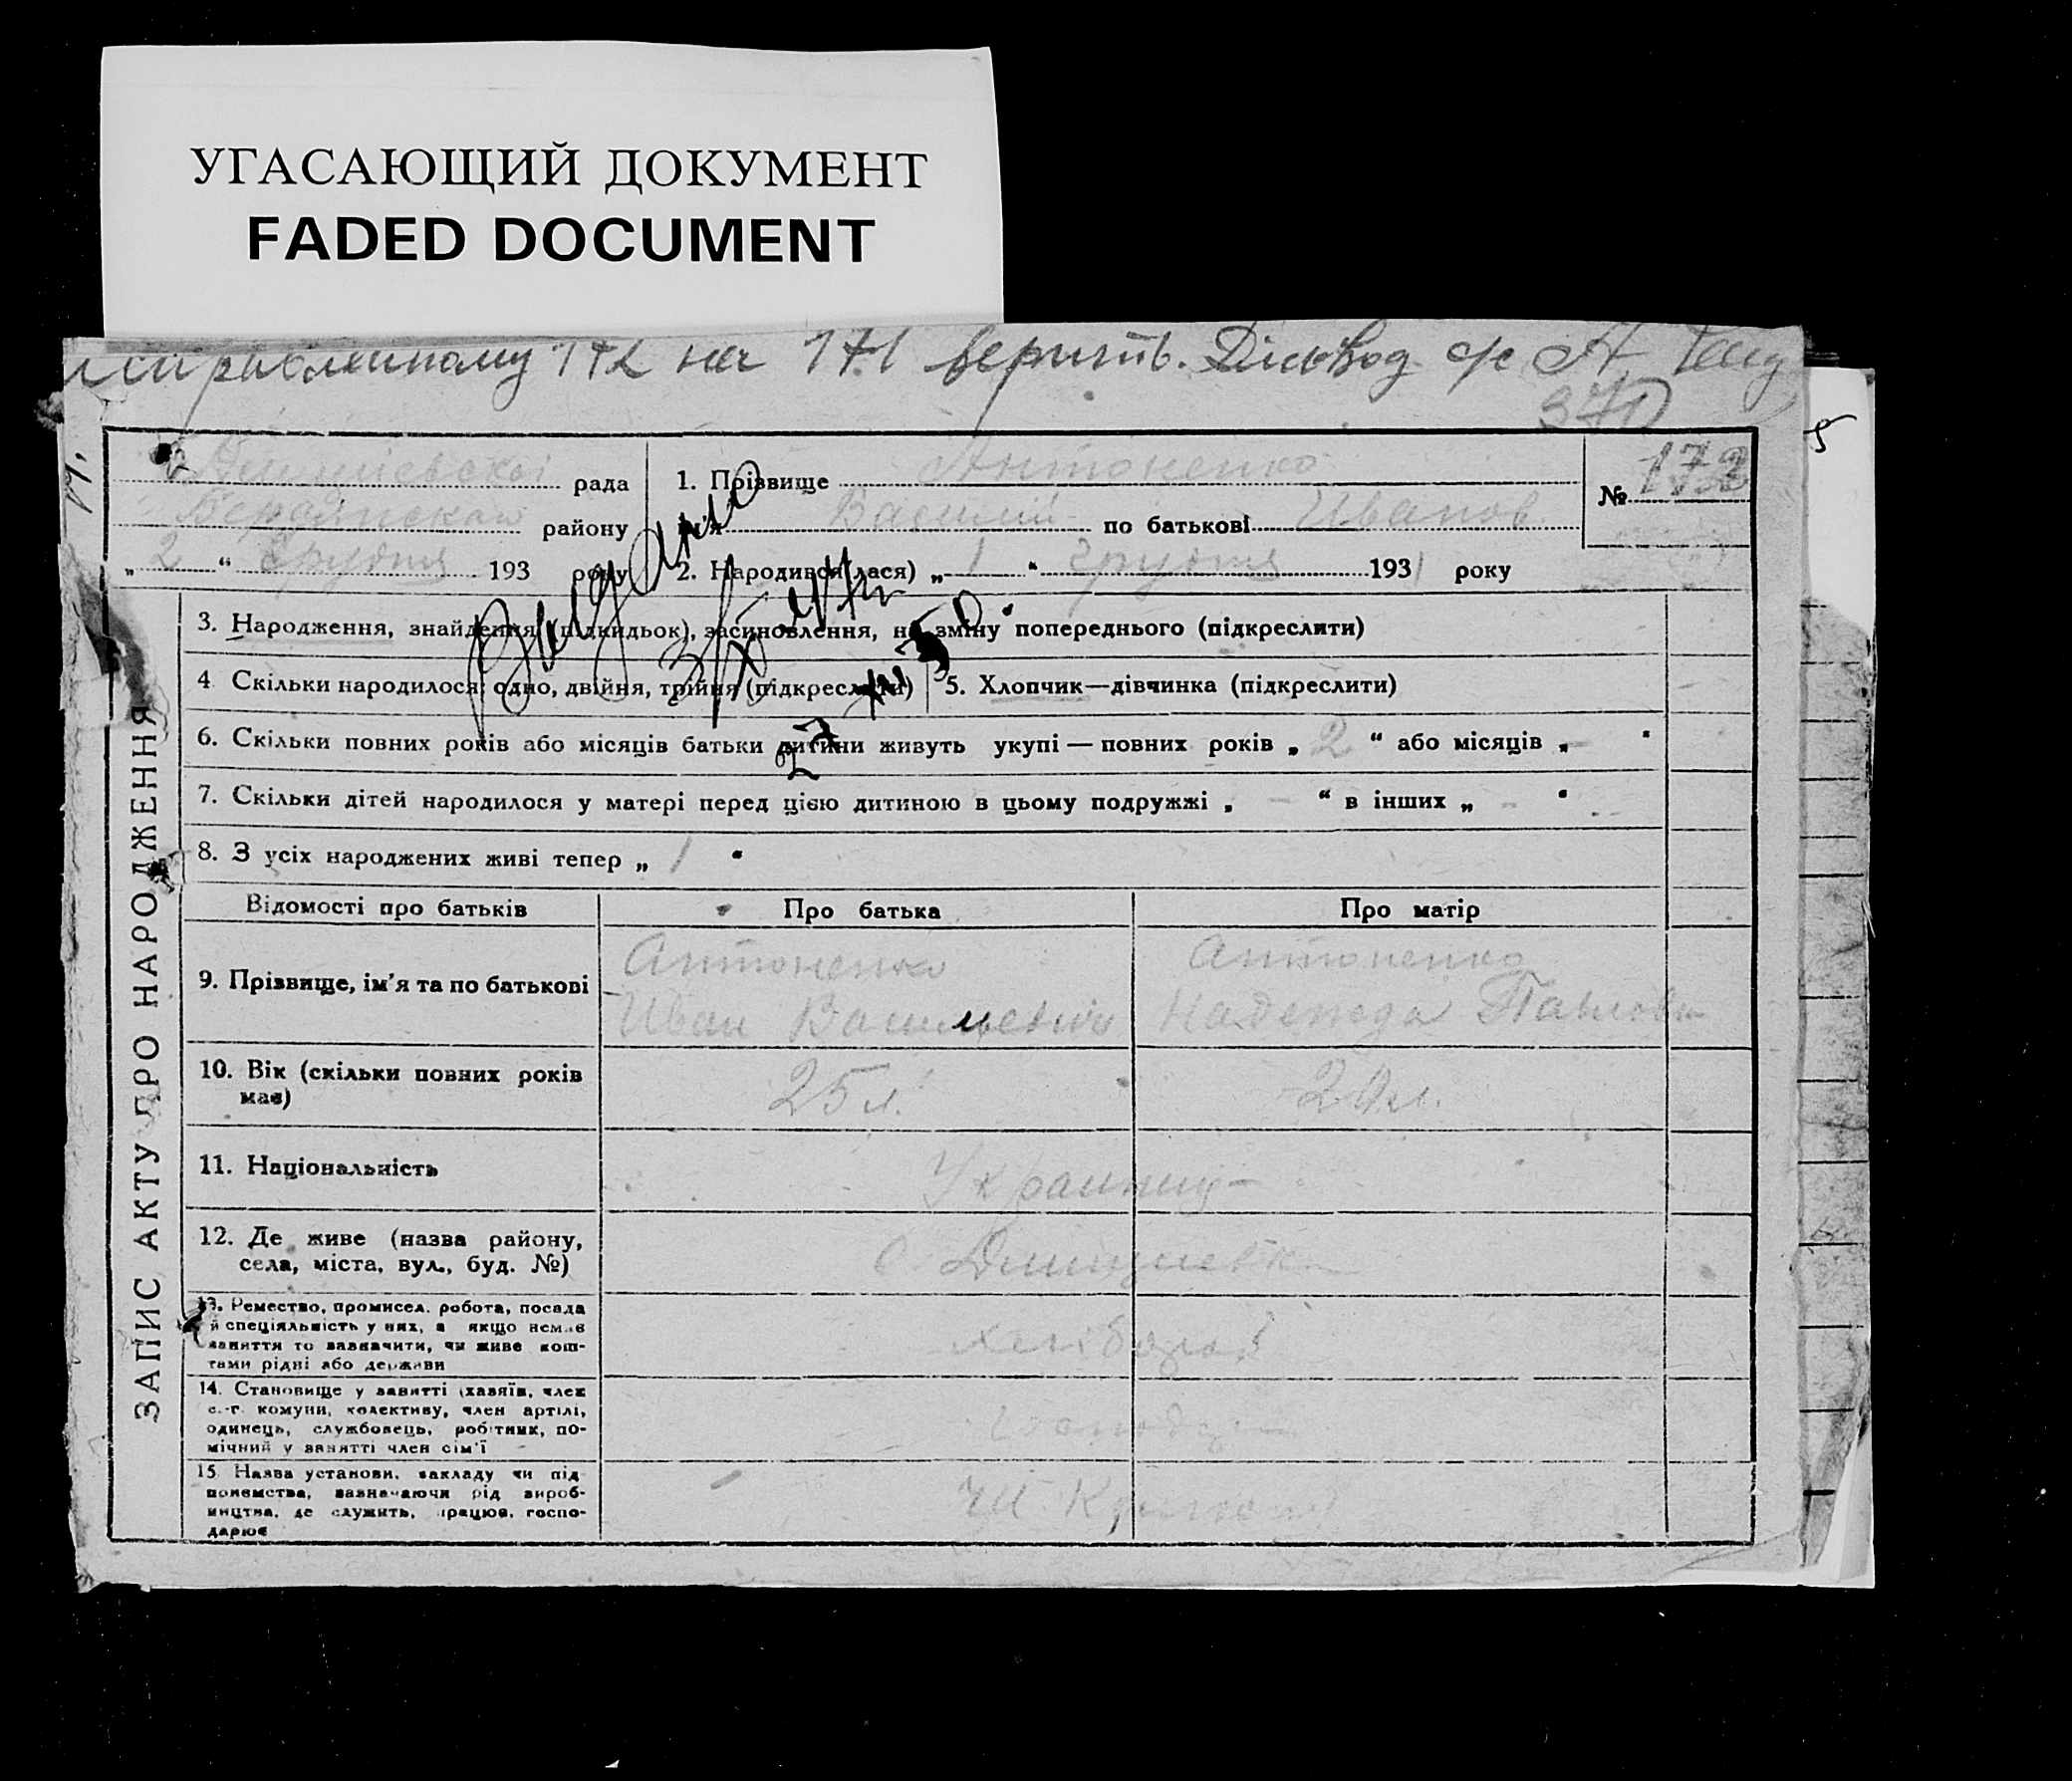 УГАСАЮЩИЙ ДОКУМЕНТ
FADED DOCUMENT
исправленному 172 на 171 верить. Діловод
370
рада
1. Прізвище Антоненко
№ 172
Бердянского району
ім'я Василий по батькові Иванов
„ 2 “ Грудня 193 року
2. Народився(лася) „ 1 “ Грудня 1931 року
Выдано
3. Народження, знайдення (підкидьок), засиновлення, на зміну попереднього (підкреслити)
4 Скільки народилося: одно, двійня, трійня (підкреслити)
5. Хлопчик—дівчинка (підкреслити)
6. Скільки повних років або місяців батьки дитини живуть укупі — повних років „ 2 “ або місяців „ - “
7. Скільки дітей народилося у матері перед цією дитиною в цьому подружжі „ - “ в інших „ - “
8. З усіх народжених живі тепер „ 1 “
ЗАПИС АКТУ ПРО НАРОДЖЕННЯ
Відомості про батьків
Про батька
Про матір
9. Прізвище, ім'я та по батькові
Антоненко
Иван Васильевич
Антоненко
Надежда Павловн
10. Вік (скільки повних років
має)
25 л.
20 л.
11. Національність
Украинцы
12. Де живе (назва району,
села, міста, вул., буд. №)
с
13. Ремество, промисел. робота, посада
й спеціяльність у них, а якщо немає
заняття то зазначити, чи живе кош-
тами рідні або держави
хлібороб
14. Становище у занятті (хазяїн, член
с.-г. комуни, колективу, член артілі,
одинець, службовець, робітник, по-
мічний у занятті член сім'ї
15 Назва установи, закладу чи під
приємства, зазначаючи рід вироб-
ництва, де служить, працює, госпо-
дарює